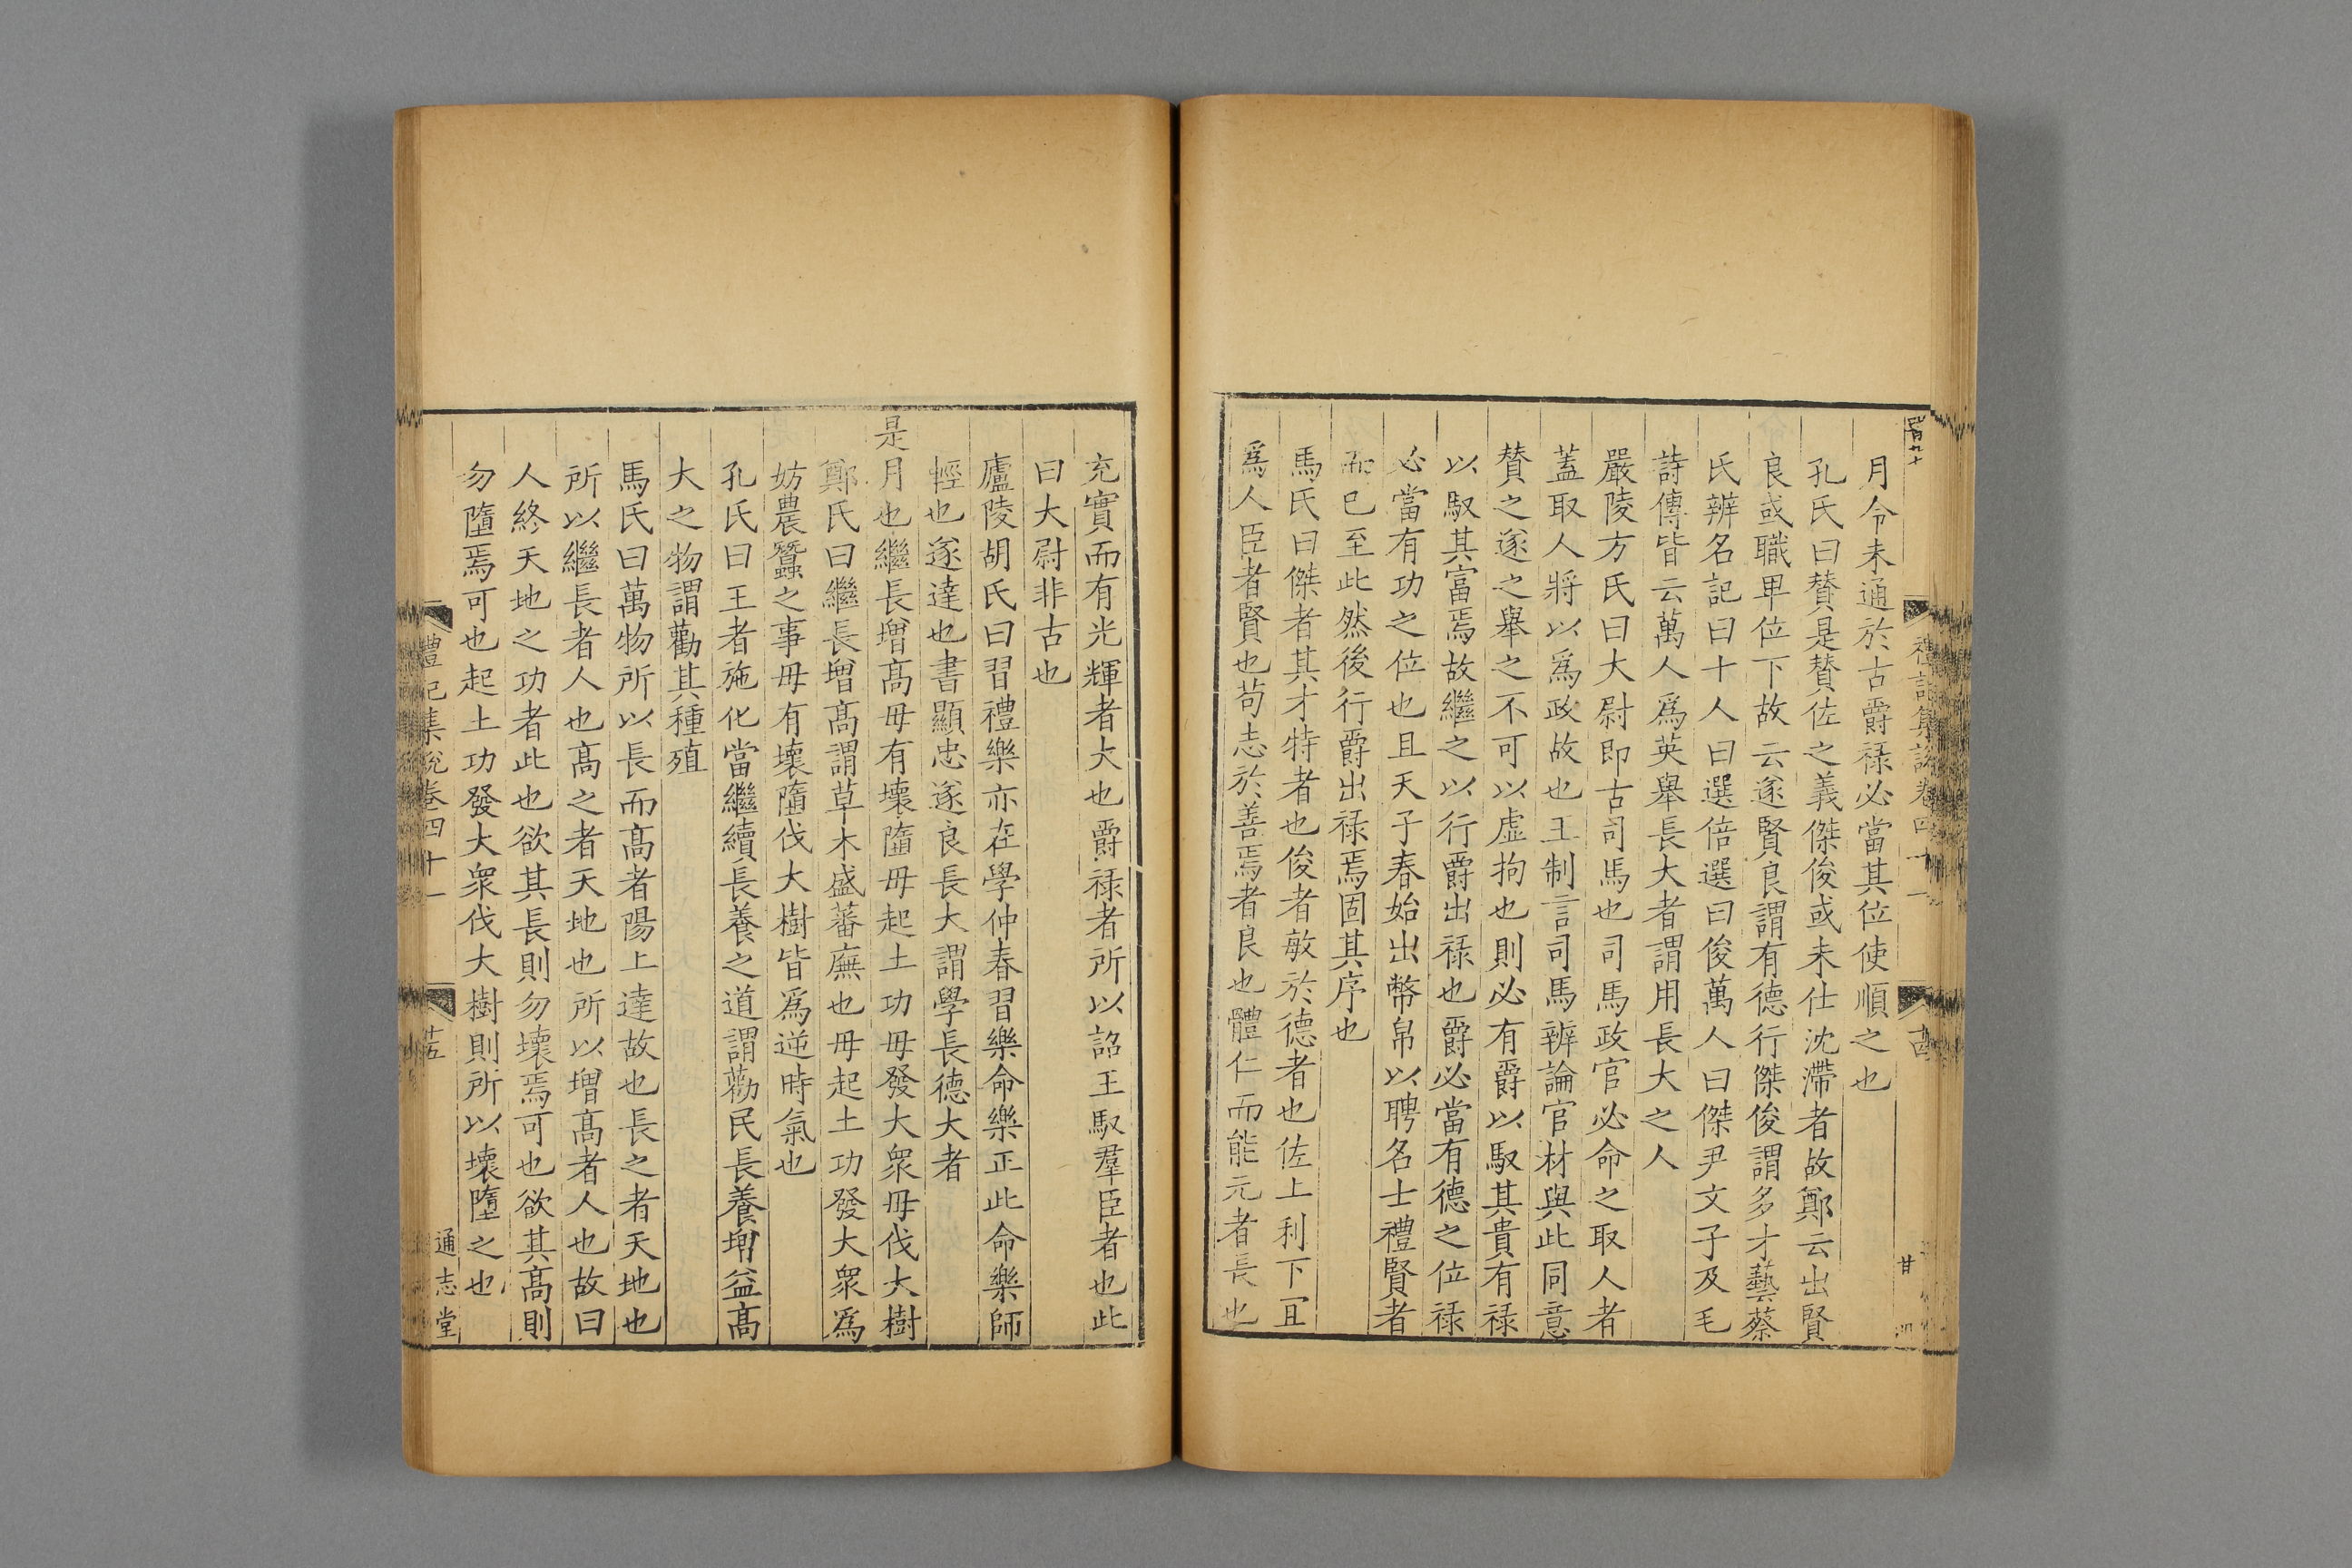 月令未通於古爵祿必當其位使順之也
孔氏曰賛是賛佐之義傑俊或未仕沈滯者故鄭云出賢
良或職卑位下故云遂賢良謂有德行傑俊謂多才藝蔡
氏辨名記曰十人曰選倍選曰俊萬人曰傑尹文子及毛
詩傳皆云萬人爲英舉長大者謂用長大之人
嚴陵方氏曰大尉即古司馬也司馬政官必命之取人者
蓋取人將以爲政故也王制言司馬辨論官材與此同意
賛之遂之舉之不可以虛拘也則必有爵以馭其貴有祿
以馭其富焉故繼之以行爵出祿也爵必當有德之位祿
必當有功之位也且天子春始出幣帛以聘名士禮賢者
而已至此然後行爵出祿焉固其序也
馬氏曰傑者其才特者也俊者敏於德者也佐上利下冝
爲人臣者賢也苟志於善焉者良也體仁而能元者長也
禮記集說卷四十一
充實而有光輝者大也爵祿者所以詔王馭羣臣者也此
曰大尉非古也
廬陵胡氏曰習禮樂亦在學仲春習樂命樂正此命樂師
輕也遂達也書顯忠遂良長大謂學長德大者
是月也繼長增髙毋有壞墮毋起土功毋發大衆毋伐大樹
鄭氏曰繼長增髙謂草木盛蕃廡也毋起土功發大衆爲
妨農蠶之事毋有壞墮伐大樹皆爲逆時氣也
孔氏曰王者施化當繼續長養之道謂勸民長養增益髙
大之物謂勸其種殖
馬氏曰萬物所以長而髙者陽上達故也長之者天地也
所以繼長者人也髙之者天地也所以增髙者人也故曰
人終天地之功者此也欲其長則勿壞焉可也欲其髙則
勿墮焉可也起土功發大衆伐大樹則所以壞墮之也
禮記集說卷四十一
廿五
通志堂